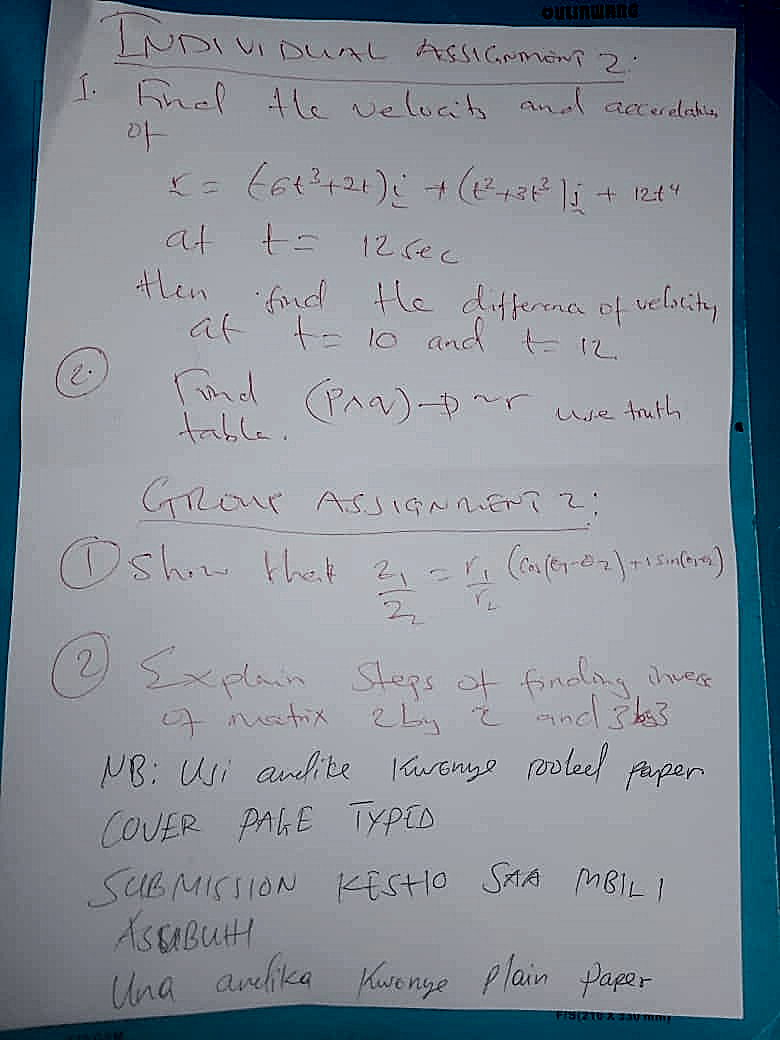 OULINWANG
INDIVIDUAL ASSIGNMENT 2:
1. Find the velocity and acceleration
of
r = (-6t³+2t)i + (t²+3t²)j + 12t⁴
at t = 12 sec
then find the difference of velocity
at t = 10 and t = 12.
2. Find (p∧q)→~r use truth
table.
GROUP ASSIGNMENT 2:
1 Show that z₁/z₂ = r₁/r₂ (cos(θ₁-θ₂)+i sin(θ₁-θ₂)
2 Explain Steps of finding inverse
of matrix 2 by 2 and 3 by 3
NB: Usi andike Kwenye rooled paper
COVER PAGE TYPED
SUBMISSION KESHO SAA MBILI
ASUBUHI
Una andika Kwenye Plain Paper